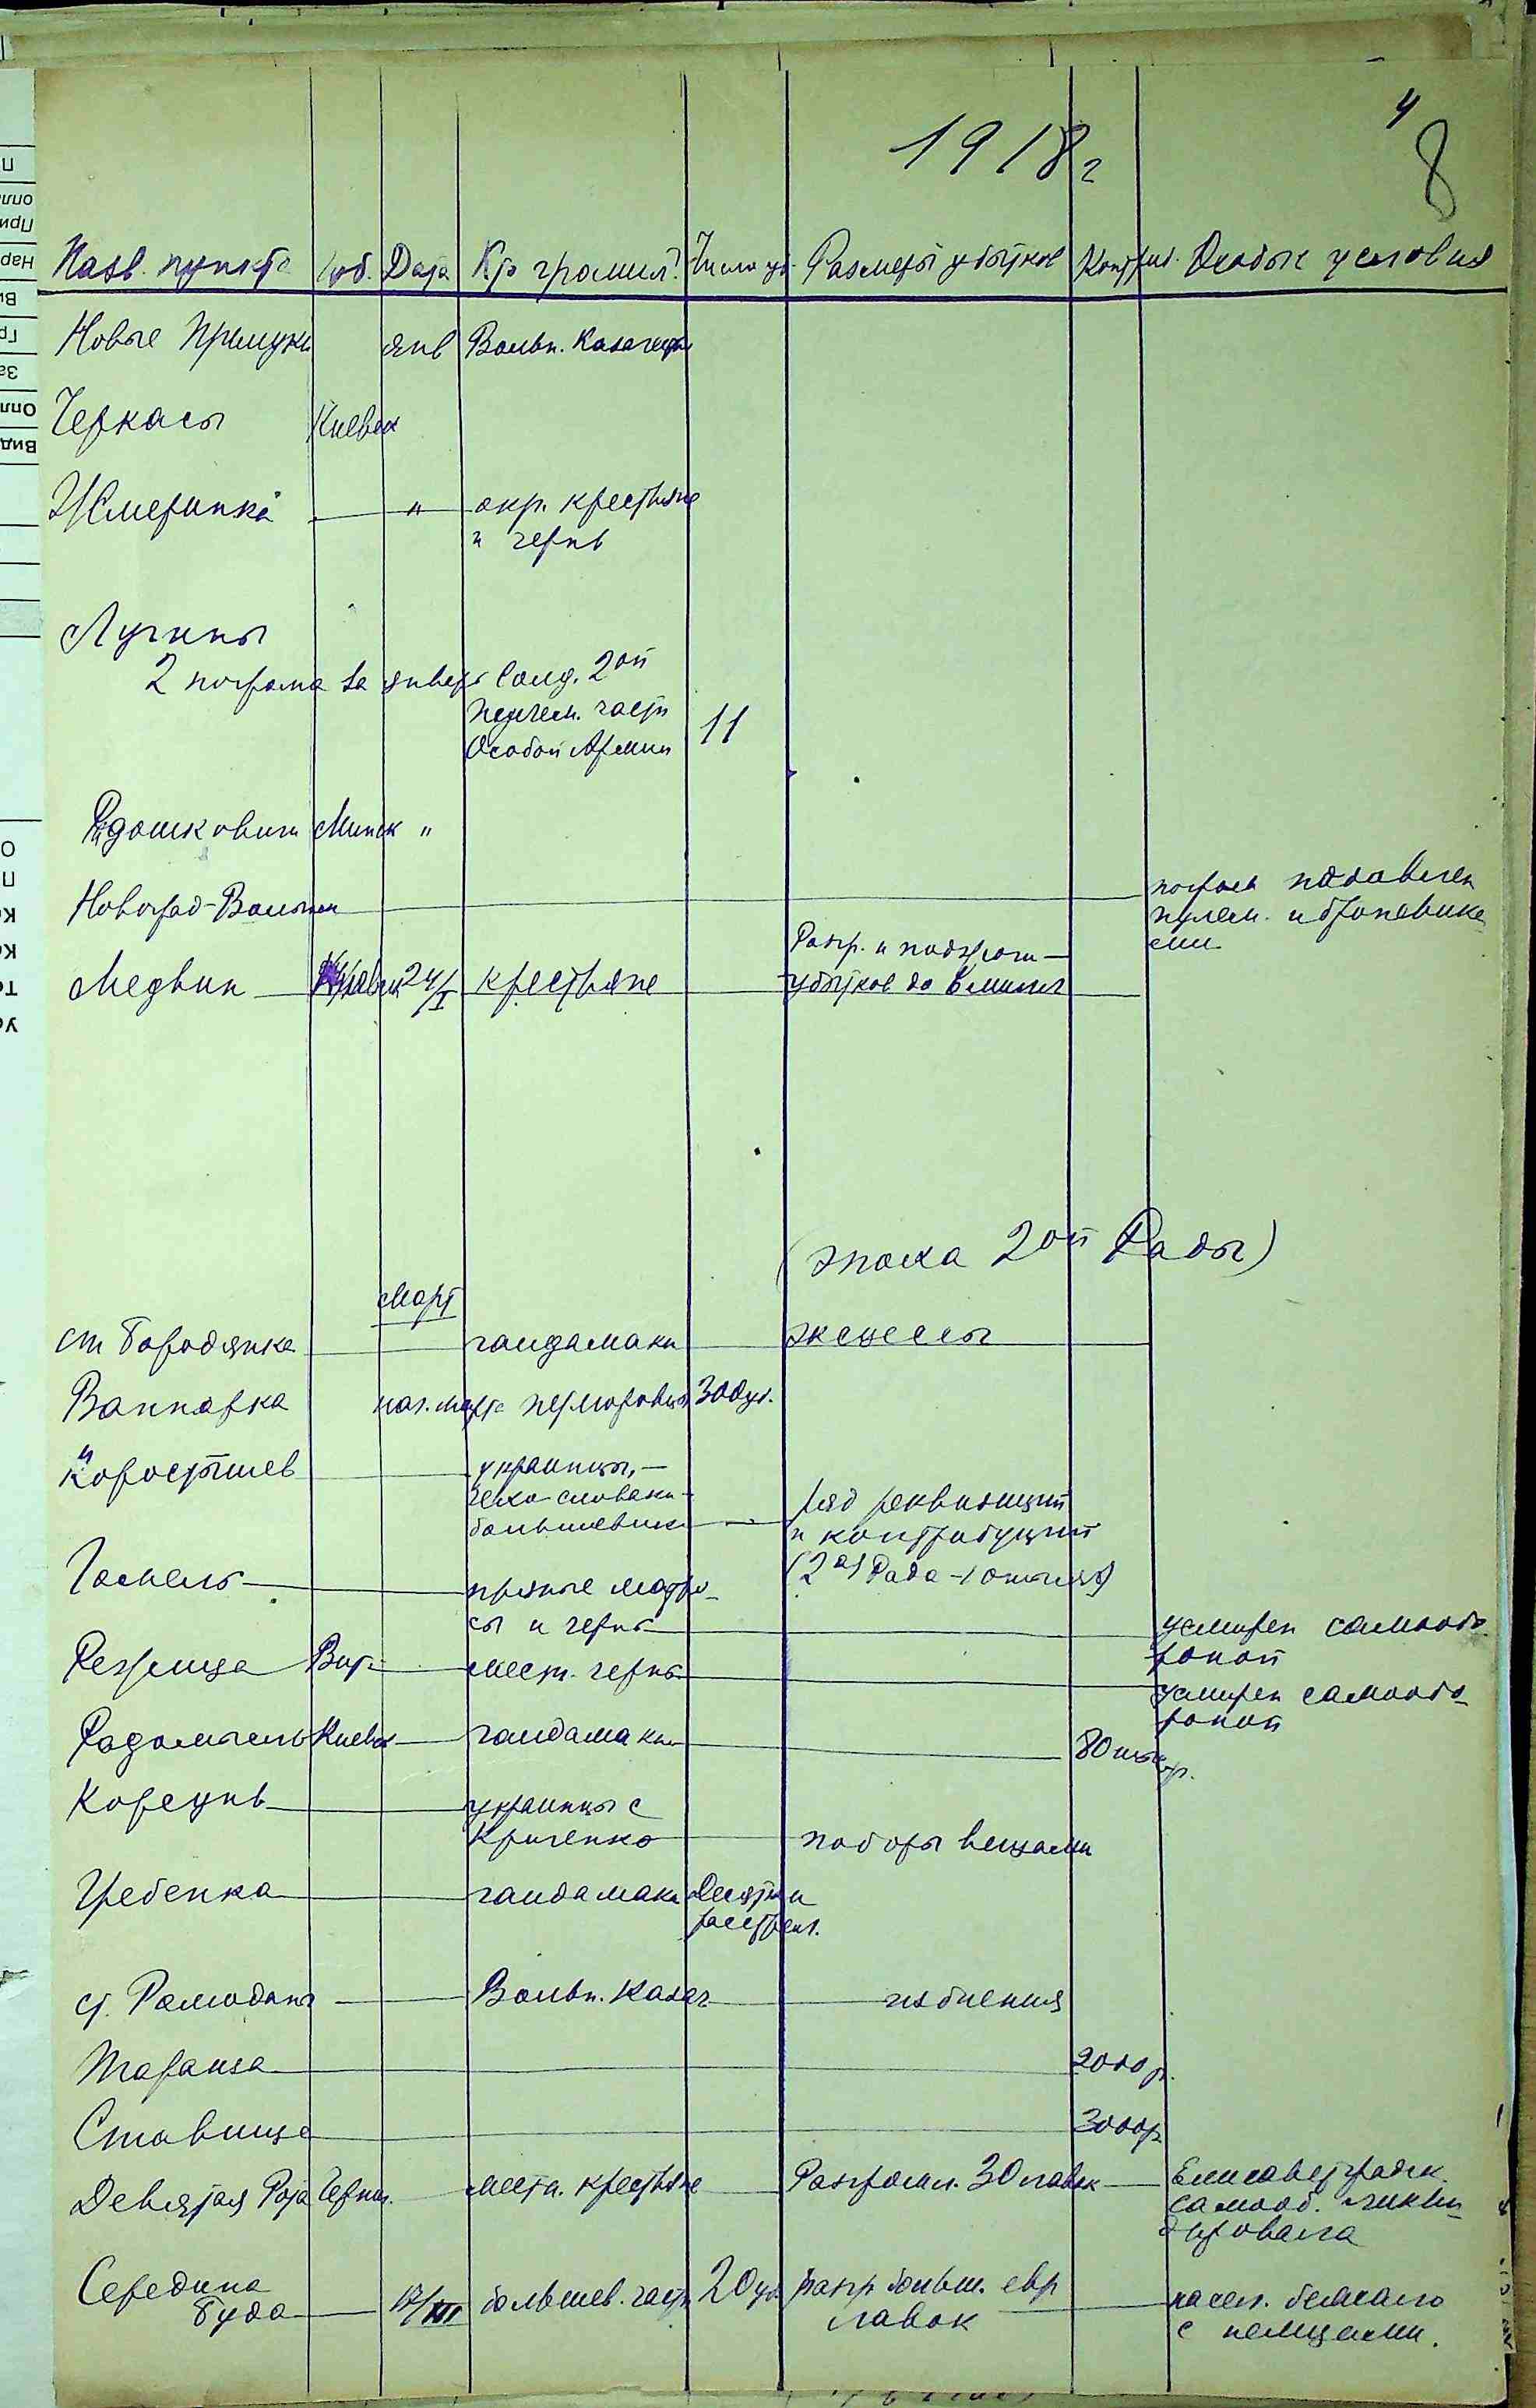 4
8
1918 г
Назв. пункта Губ. Дата Кто громил? Число уб. Размеры убытков Контриб. Особые условия
Новые Прилуки янв Вольн. Казачество
Черкасы Киевск
Жмеринка " окр. крестьяне
и чернь
Лугины
2 погрома за январь Солд. 2ой
пулем. части
Особой Армии 11
Радошковичи Минск "
Новоград-Волынск погром подавлен
пулем. и броневика
ми
Медвин Киевск 24/I крестьяне Разгр. и поджоги —
убытков до 6 милл
(эпоха 2ой Рады)
Март
ст Бородянка гайдамаки эксцессы
Вапнярка нач. марта петлюровцы 300 уб.
Коростышев украинцы, —
чехо-словаки —
большевики ряд реквизиций
и контрибуций
(2ая Рада
Гомель пьяные матро-
сы и чернь усмирен самообо
роной
Режица Вит. мест. чернь усмирен самообо-
роной
Радомысль Киевск гайдамаки 80 тыс. р.
Корсунь украинцы с
поборы вещами
Гребенка гайдамаки Десятки
расстрел.
ст. Ромодан Вольн. Казач избиения
Тараща 2000 р.
Ставище 3000 р
Девятая Рота Черниг. местн. крестьяне Разгромл. 30 лавок Елисаветградск.
самооб. ликви-
дировала
Середина
Буда 17/III большев. части 20 уб разгр больш. евр
лавок насел. бежало
с немцами.